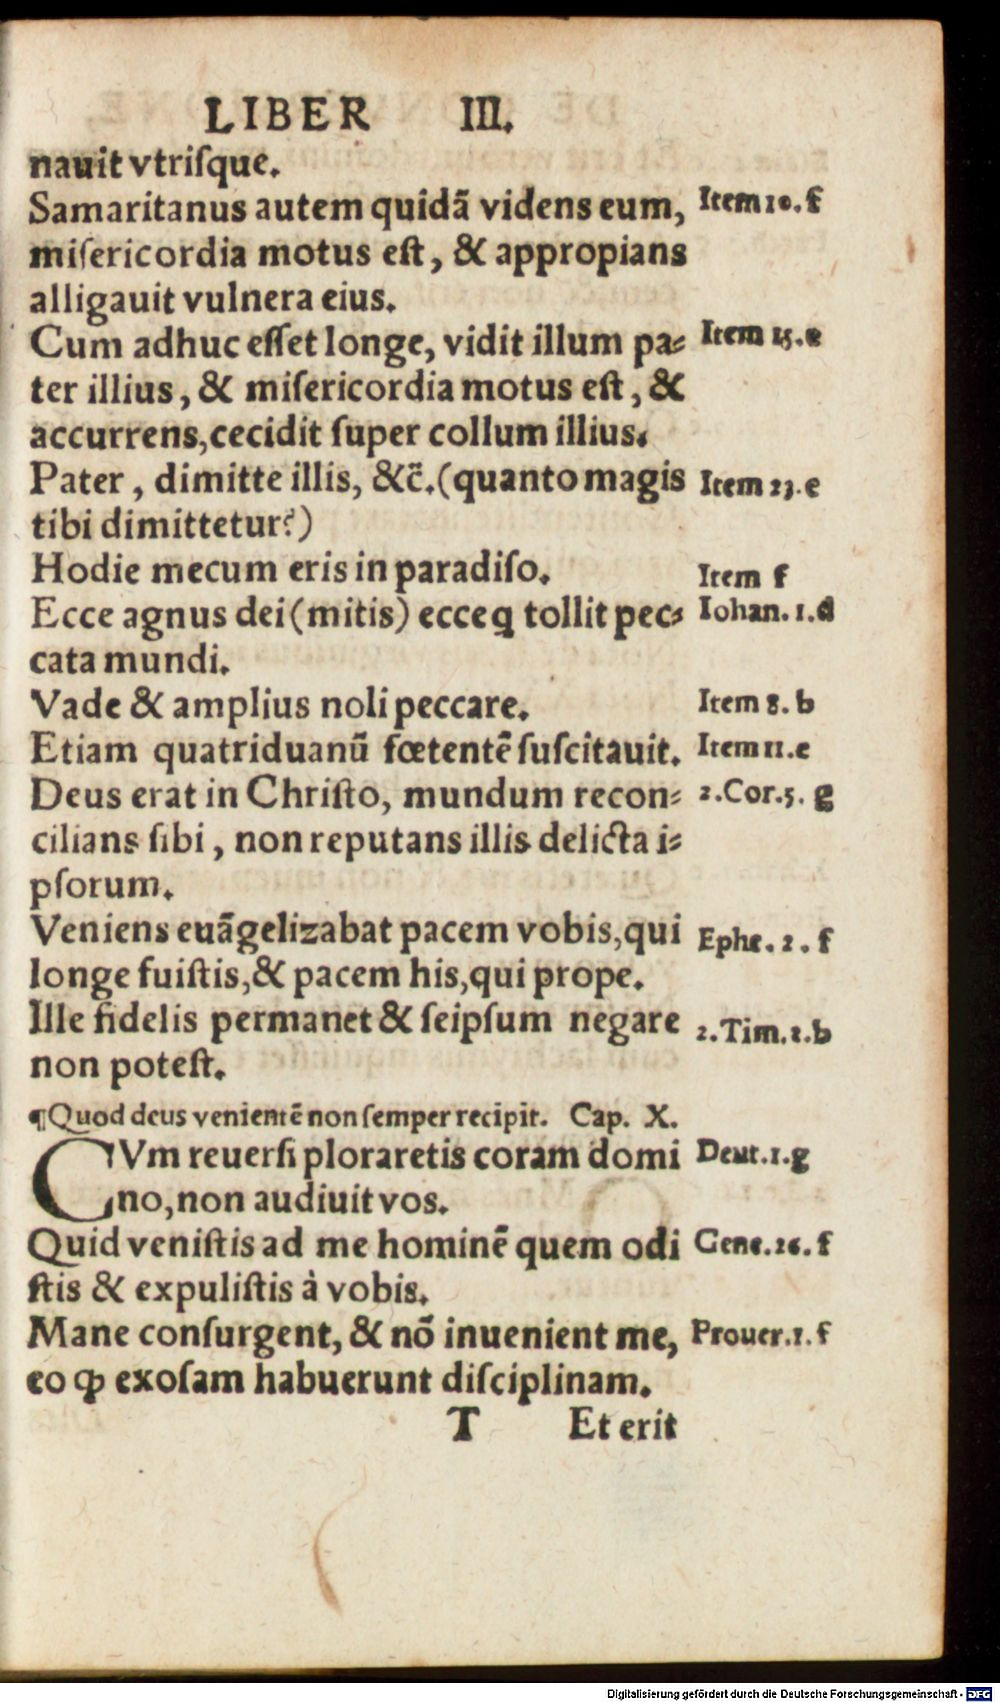 LIBER III.
nauit vtriſque.
Samaritanus autem quidã videns eum, Item 10. f
miſericordia motus eſt, & appropians
alligauit vulnera eius.
Cum adhuc eſſet longe, vidit illum pa⸗ Item 15. e
ter illius, & miſericordia motus eſt, &
accurrens, cecidit ſuper collum illius.
Pater, dimitte illis, &c̃. (quanto magis Item 23. e
tibi dimittetur?)
Hodie mecum eris in paradiſo. Item f
Ecce agnus dei (mitis) ecce q tollit pec⸗ Iohan. 1. d
cata mundi.
Vade & amplius noli peccare. Item 8. b
Etiam quatriduanũ fœtentẽ ſuſcitauit. Item 11. e
Deus erat in Chriſto, mundum recon⸗ 2. Cor. 5. g
cilians ſibi, non reputans illis delicta i⸗
pſorum.
Veniens euãgelizabat pacem vobis, qui Ephe. 2. f
longe fuiſtis, & pacem his, qui prope.
Ille fidelis permanet & ſeipſum negare 2. Tim. 2. b
non poteſt.
¶Quod deus venientẽ non ſemper recipit. Cap. X.
CVm reuerſi ploraretis coram domi Deut. 1. g
no, non audiuit vos.
Quid veniſtis ad me hominẽ quem odi Gene. 26. f
ſtis & expuliſtis à vobis.
Mane conſurgent, & nõ inuenient me, Prouer. 1. f
eo ꝙ exoſam habuerunt diſciplinam.
T Et erit
Digitalisierung gefördert durch die Deutsche Forschungsgemeinschaft - DFG